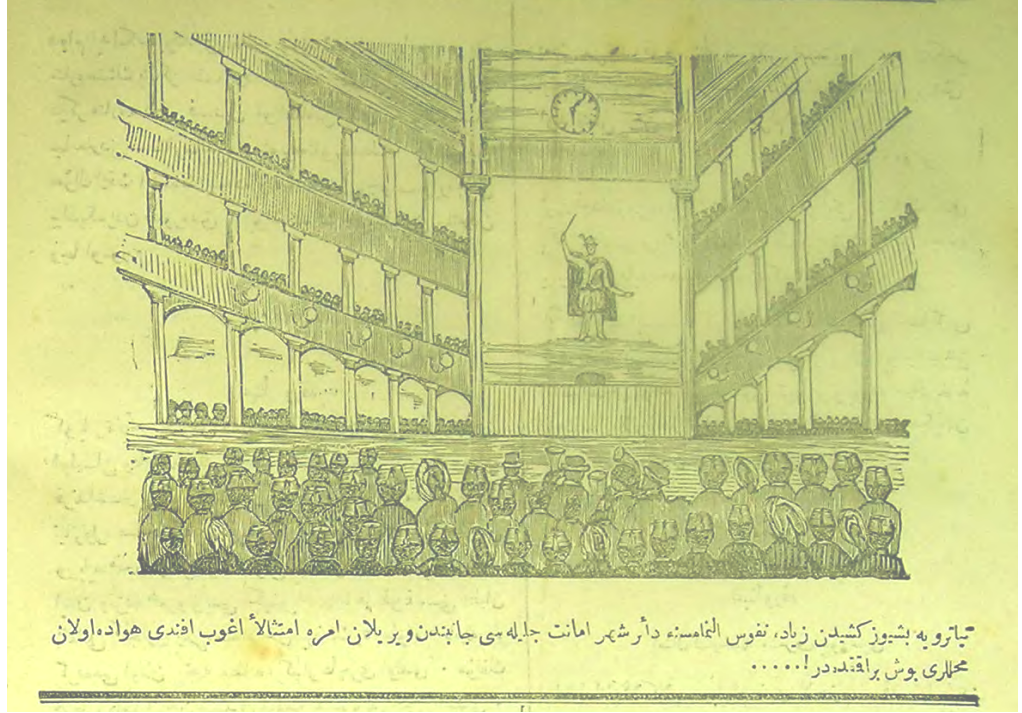 تیاترویه بشیوز کشیدن زیاد، نفوس النمامسنه دائر شهر امانت جلیله سی جانبندن ویریلان امره امتثالاً اغوب افندی هواده اولان
محللری بوش براقنده در!.....